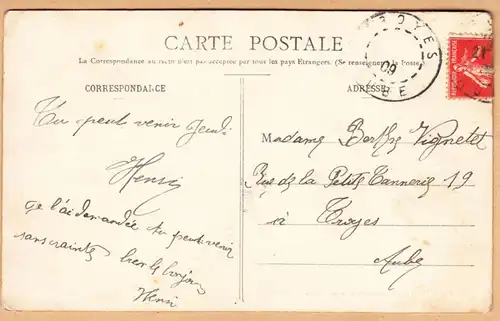 CARTE POSTALE
La Correspondance au recto n'est pas acceptée par tous les pays Etrangers. (Se renseigner à la Poste)
CORRESPONDANCE
ADRESSE
TROYES
09
AUBE
21
Tu peut venir Jeudi
Henri
Je l'ai demandée tu peut venir
sans crainte bonjour
Henri
Madame Berthe Vignetet
Rue de la Petite Tannerie 19
à Troyes
Aube